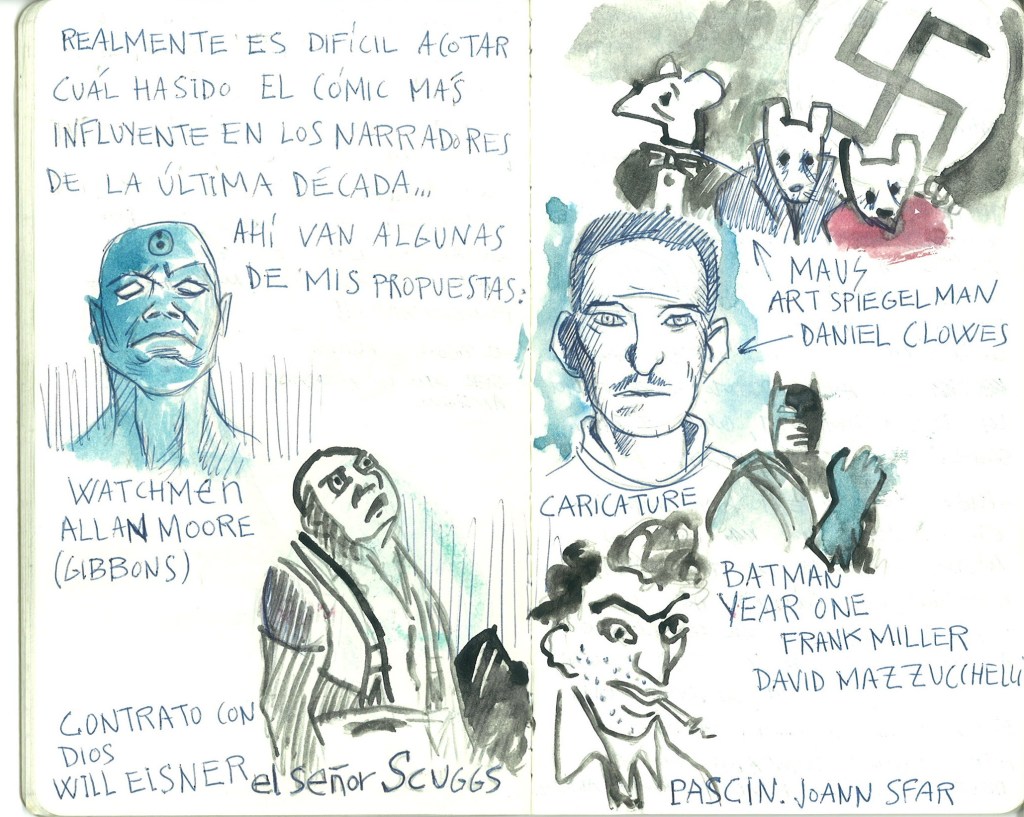 REALMENTE ES DIFÍCIL ACOTAR
CUÁL HA SIDO EL CÓMIC MAS
INFLUYENTE EN LOS NARRADORES
DE LA ÚLTIMA DÉCADA...
AHÍ VAN ALGUNAS
DE MIS PROPUESTAS:
WATCHMEN
ALLAN MOORE
(GIBBONS)
CONTRATO CON
DIOS
WILL EISNER
el señor SCUGGS
MAUS
ART SPIEGELMAN
DANIEL CLOWES
CARICATURE
BATMAN
YEAR ONE
FRANK MILLER
DAVID MAZZUCCHELLI
PASCIN. JOANN SFAR